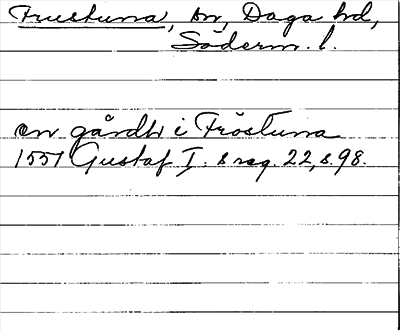 Frustuna, sn, Daga hd,
Söderm. l.
en gårdh i Fröstuna
1551 Gustaf I. s reg. 22, s. 98.